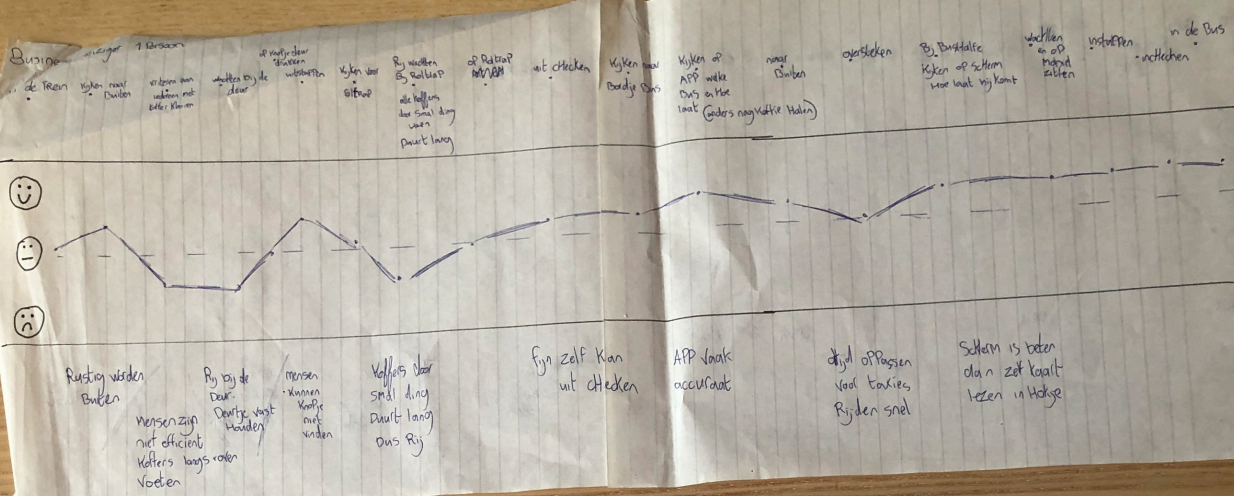 1 Persoon
de Trein
Kijken naar
Buiten
wachten bij de
deur
op Knopje deur
drukken
uitstappen
Kijken voor
Rij wachten
Bij Roltrap
alle Koffers
door smal ding
Duurt lang
op Roltrap
uit cHecken
Kijken naar
Bordje Bus
Kijken op
APP welke
Bus en Hoe
laat (anders nog Koffie Halen)
naar
Buiten
oversteken
Bij BusHalte
Kijken op scherm
Hoe laat Hij Komt
wachten
en op
zitten
instappen
incHecken
in de Bus
Rustig worden
Buiten
Mensen zijn
niet efficient
Koffers langs
Voeten
Rij bij de
Deur.
Deurtje vast
Houden
mensen
Kunnen
Knopje
niet
vinden
Koffers door
smal ding
Duurt lang
Dus Rij
fijn zelf Kan
uit cHecken
APP vaak
accuraat
Altijd oppassen
voor taxies
Rijden snel
Scherm is beter
dan zelf Kaart
lezen in Hokje